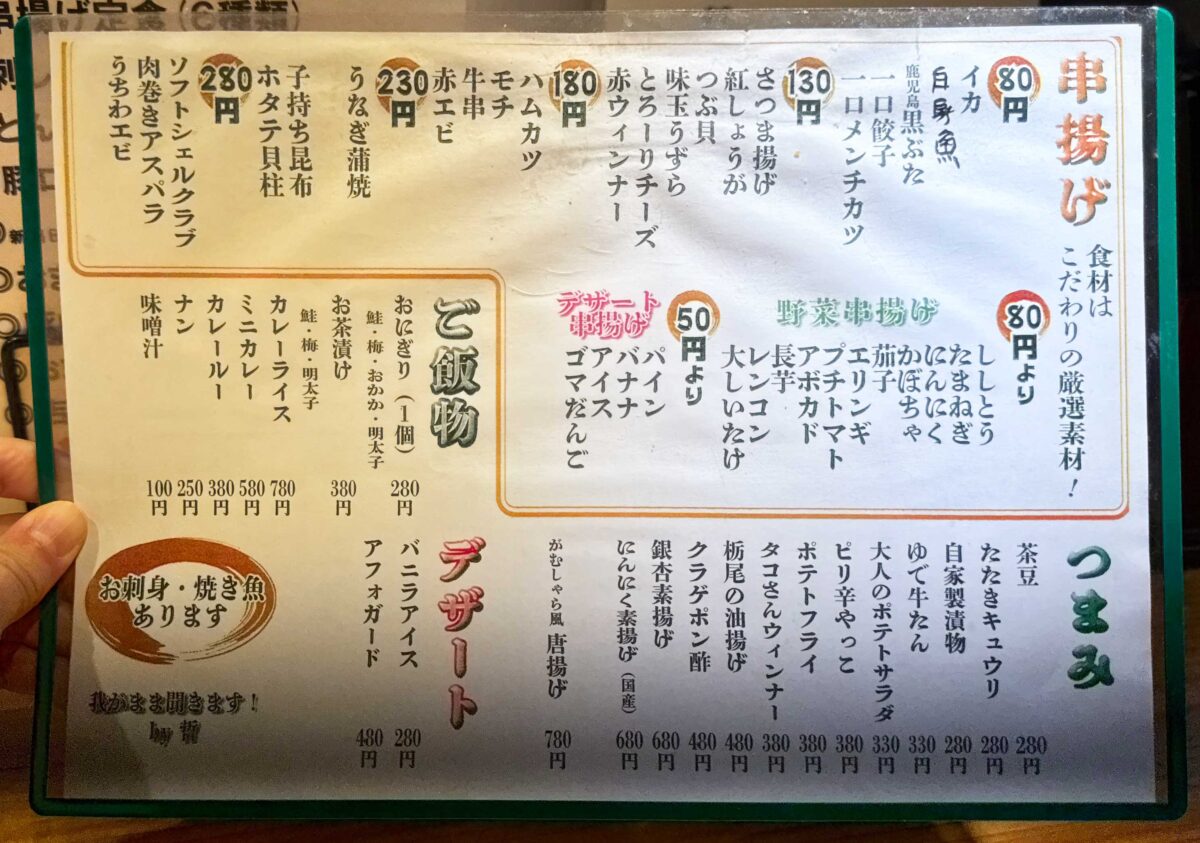 串揚げ
食材は
こだわりの厳選素材！
80円
イカ
白身魚
鹿児島黒ぶた
一口餃子
一口メンチカツ
130円
さつま揚げ
紅しょうが
つぶ貝
味玉うずら
とろーりチーズ
赤ウィンナー
180円
ハムカツ
モチ
牛串
赤エビ
230円
うなぎ蒲焼
子持ち昆布
ホタテ貝柱
280円
ソフトシェルクラブ
肉巻きアスパラ
うちわエビ
野菜串揚げ
80円より
ししとう
たまねぎ
にんにく
かぼちゃ
茄子
エリンギ
プチトマト
アボカド
長芋
レンコン
大しいたけ
デザート
串揚げ
50円より
パイン
バナナ
アイス
ゴマだんご
ご飯物
おにぎり（1個） 280円
鮭・梅・おかか・明太子
お茶漬け 380円
鮭・梅・明太子
カレーライス 780円
ミニカレー 580円
カレールー 380円
ナン 250円
味噌汁 100円
つまみ
茶豆 280円
たたきキュウリ 280円
自家製漬物 280円
ゆで牛たん 330円
大人のポテトサラダ 330円
ピリ辛やっこ 380円
ポテトフライ 380円
タコさんウィンナー 380円
栃尾の油揚げ 480円
クラゲポン酢 480円
銀杏素揚げ 680円
にんにく素揚げ（国産） 680円
がむしゃら風 唐揚げ 780円
デザート
バニラアイス 280円
アフォガード 480円
お刺身・焼き魚
あります
我がまま聞きます！
串揚げ定食